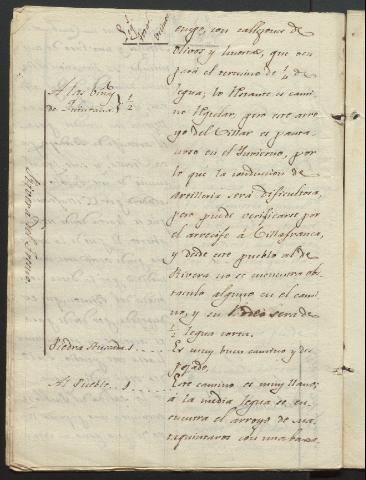 engo, con callejones de
olivos y huertas, que ocu
pará el termino de ¼ de
legua; lo restante es cami
no regular, pero este arro
yo del Villar es panta
noso en el Invierno, por
lo que la conducion de
artilleria será dificultosa,
pero puede verificarse por
el arrecife á Villafranca,
y desde este pueblo al de
Rivera no se encuentra obs
taculo alguno en el cami
no, y su Rodeo será de
½ legua corta.
A las
de Quintana } ½
Piedra 1 .... Es muy buen camino y des
pejado,
Al Pueblo. 1 .... Este camino es muy llano;
á la media legua se en
cuentra el arroyo de
con una baxa